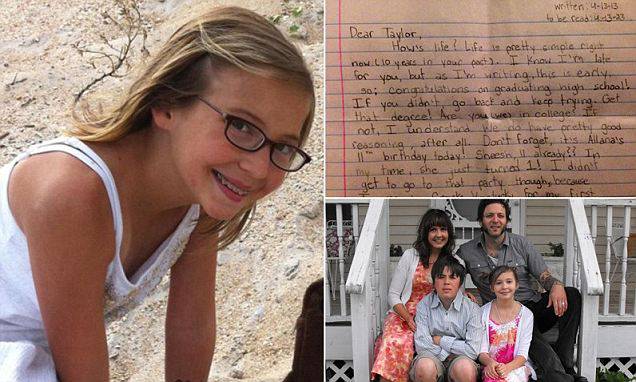 written: 4-13-13
to be read: 4-13-23
Dear Taylor,
How's life? Life is pretty simple right
now (10 years in your past). I know I'm late
for you, but as I'm writing, this is early,
so; congratulations on graduating high school!
If you didn't go back and keep trying. Get
that degree! Are you in college? If
not, I understand. We do have pretty good
reasoning, after all. Don't forget, it's Allana's
11th birthday today! Sheesh, 11 already?? In
my time, she just turned 1! I didn't
get to go to that party though, because
for my first